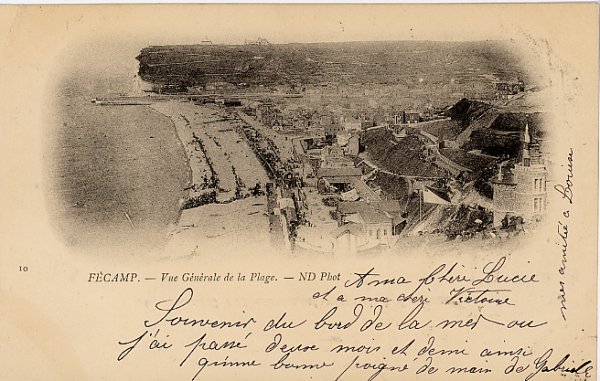 10
FÉCAMP. — Vue Générale de la Plage. — ND Phot
A ma chère Lucie
et a ma chère Victoire
Souvenir du bord de la mer ou
j'ai passé deux mois et demi ainsi
qu'une bonne poigné de main de Gabrielle
mes amitié a Louise